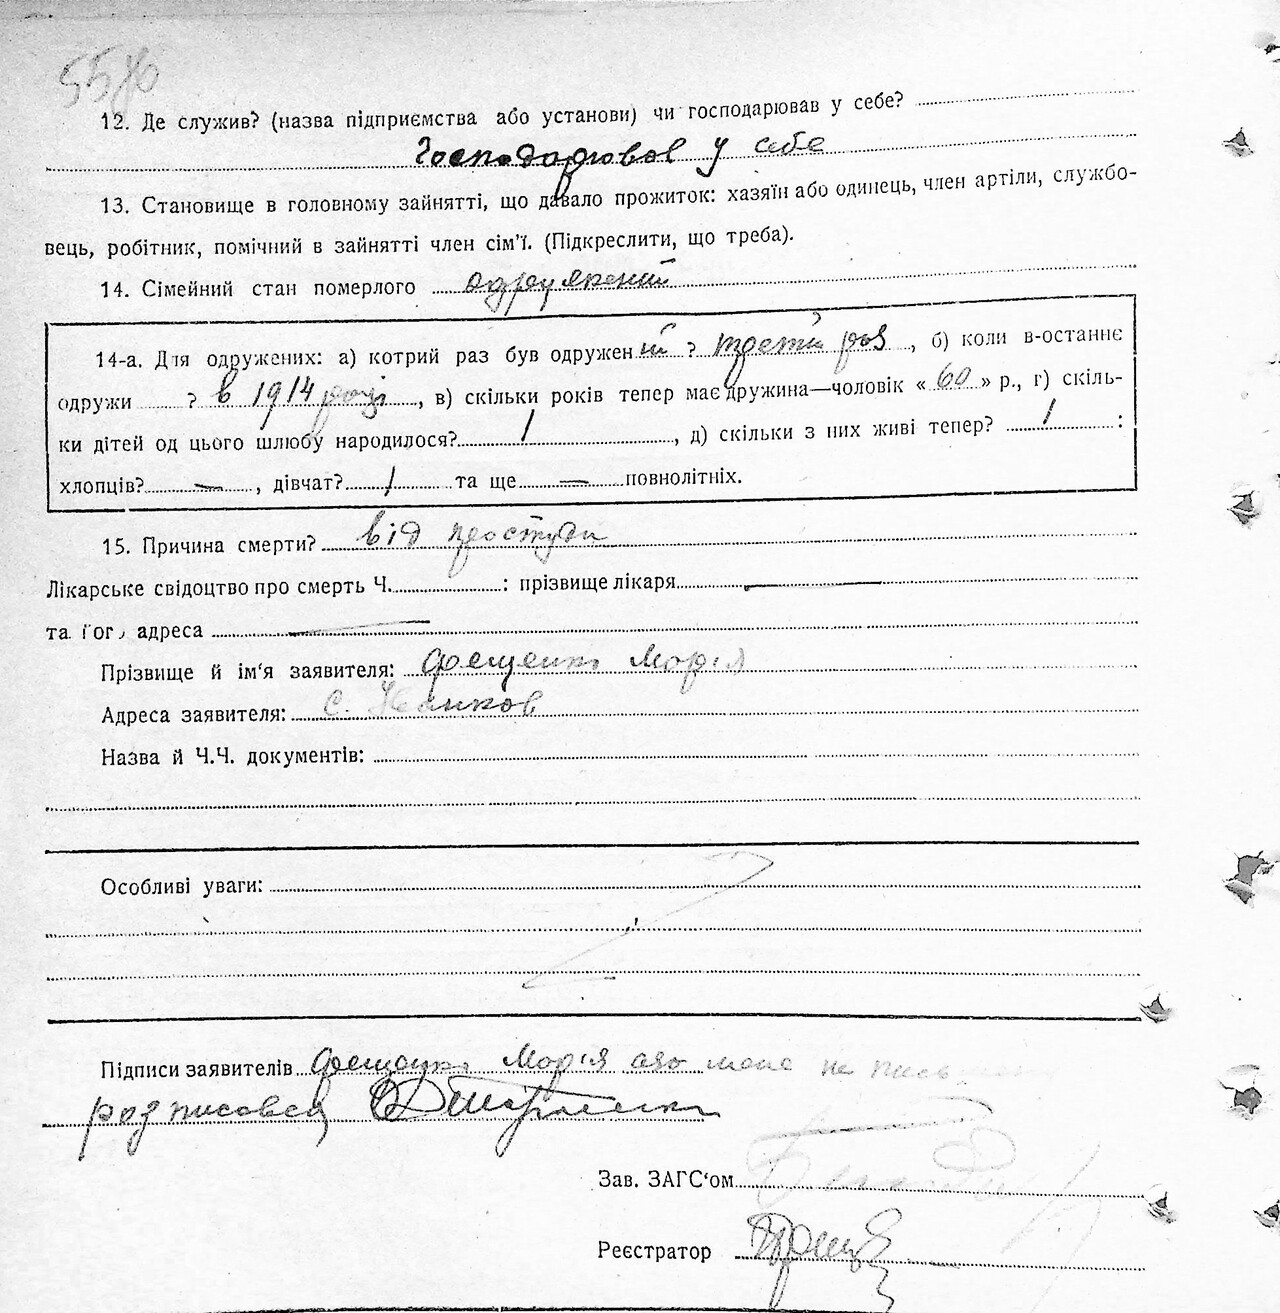 12. Де служив? (назва підприємства або установи) чи господарював у себе?
Господарював у себе
13. Становище в головному зайнятті, що давало прожиток: хазяїн або одинець, член артіли, службо-
вець, робітник, помічний в зайнятті член сім'ї. (Підкреслити, що треба).
14. Сімейний стан померлого одружений
14-а. Для одружених: а) котрий раз був одружений ? третій раз, б) коли в-останнє
одружи ? в 1914 році, в) скільки років тепер має дружина—чоловік « 60 » р., г) скіль-
ки дітей од цього шлюбу народилося? 1, д) скільки з них живі тепер? 1 :
хлопців? —, дівчат? 1 та ще — повнолітніх.
15. Причина смерти? від простуди
Лікарське свідоцтво про смерть Ч. : прізвище лікаря —
та його адреса —
Прізвище й ім'я заявителя: Фещенко Марія
Адреса заявителя: с.
Назва й Ч.Ч. документів:
Особливі уваги:
Підписи заявителів Фещенко Марія
розписовся
Зав. ЗАГС'ом
Реєстратор